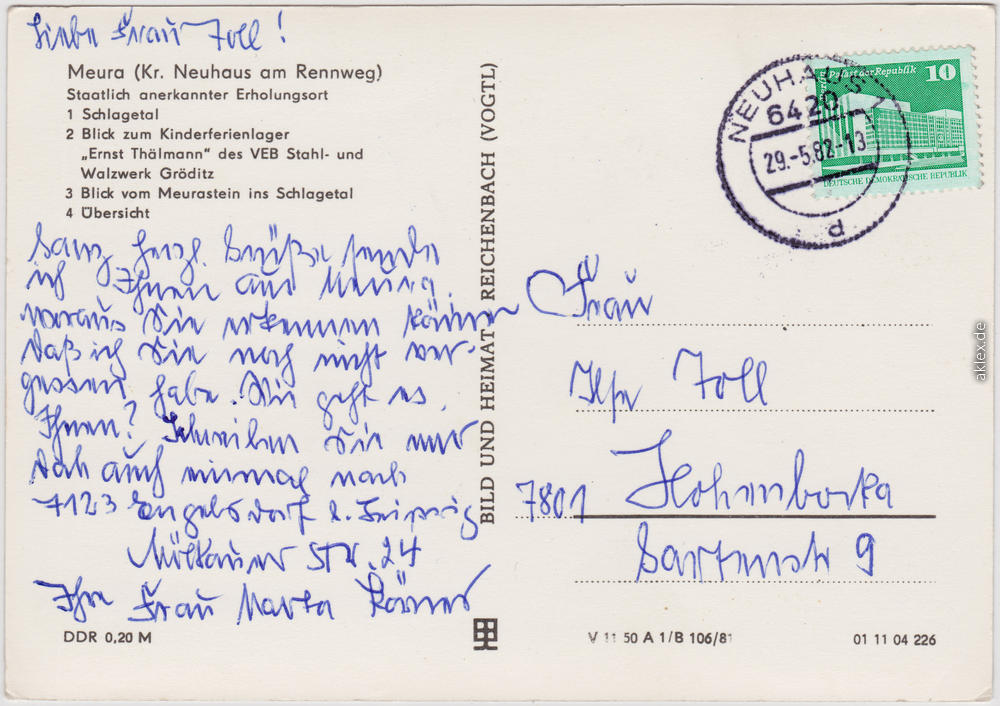 Liebe Frau Toll!
Meura (Kr. Neuhaus am Rennweg)
Staatlich anerkannter Erholungsort
1 Schlagetal
2 Blick zum Kinderferienlager
„Ernst Thälmann" des VEB Stahl- und
Walzwerk Gröditz
3 Blick vom Meurastein ins Schlagetal
4 Übersicht
Ganz herzl. Grüße sende
ich Ihnen aus Meura,
woraus Sie erkennen können
daß ich Sie noch nicht ver-
gessen habe. Wie geht es
Ihnen? Schreiben Sie mir
doch auch einmal nach
7123 Engelsdorf b. Leipzig
Mölkauer Str. 24
Ihre Frau Marta Körner
DDR 0,20 M
BILD UND HEIMAT REICHENBACH (VOGTL)
NEUHAUS 1
6420
29.-5.82-13
P
Palast der Republik 10
DEUTSCHE DEMOKRATISCHE REPUBLIK
Frau
Toll
7801 Hohenbocka
Gartenstr 9
V 11 50 A 1/B 106/81
01 11 04 226
aklex.de